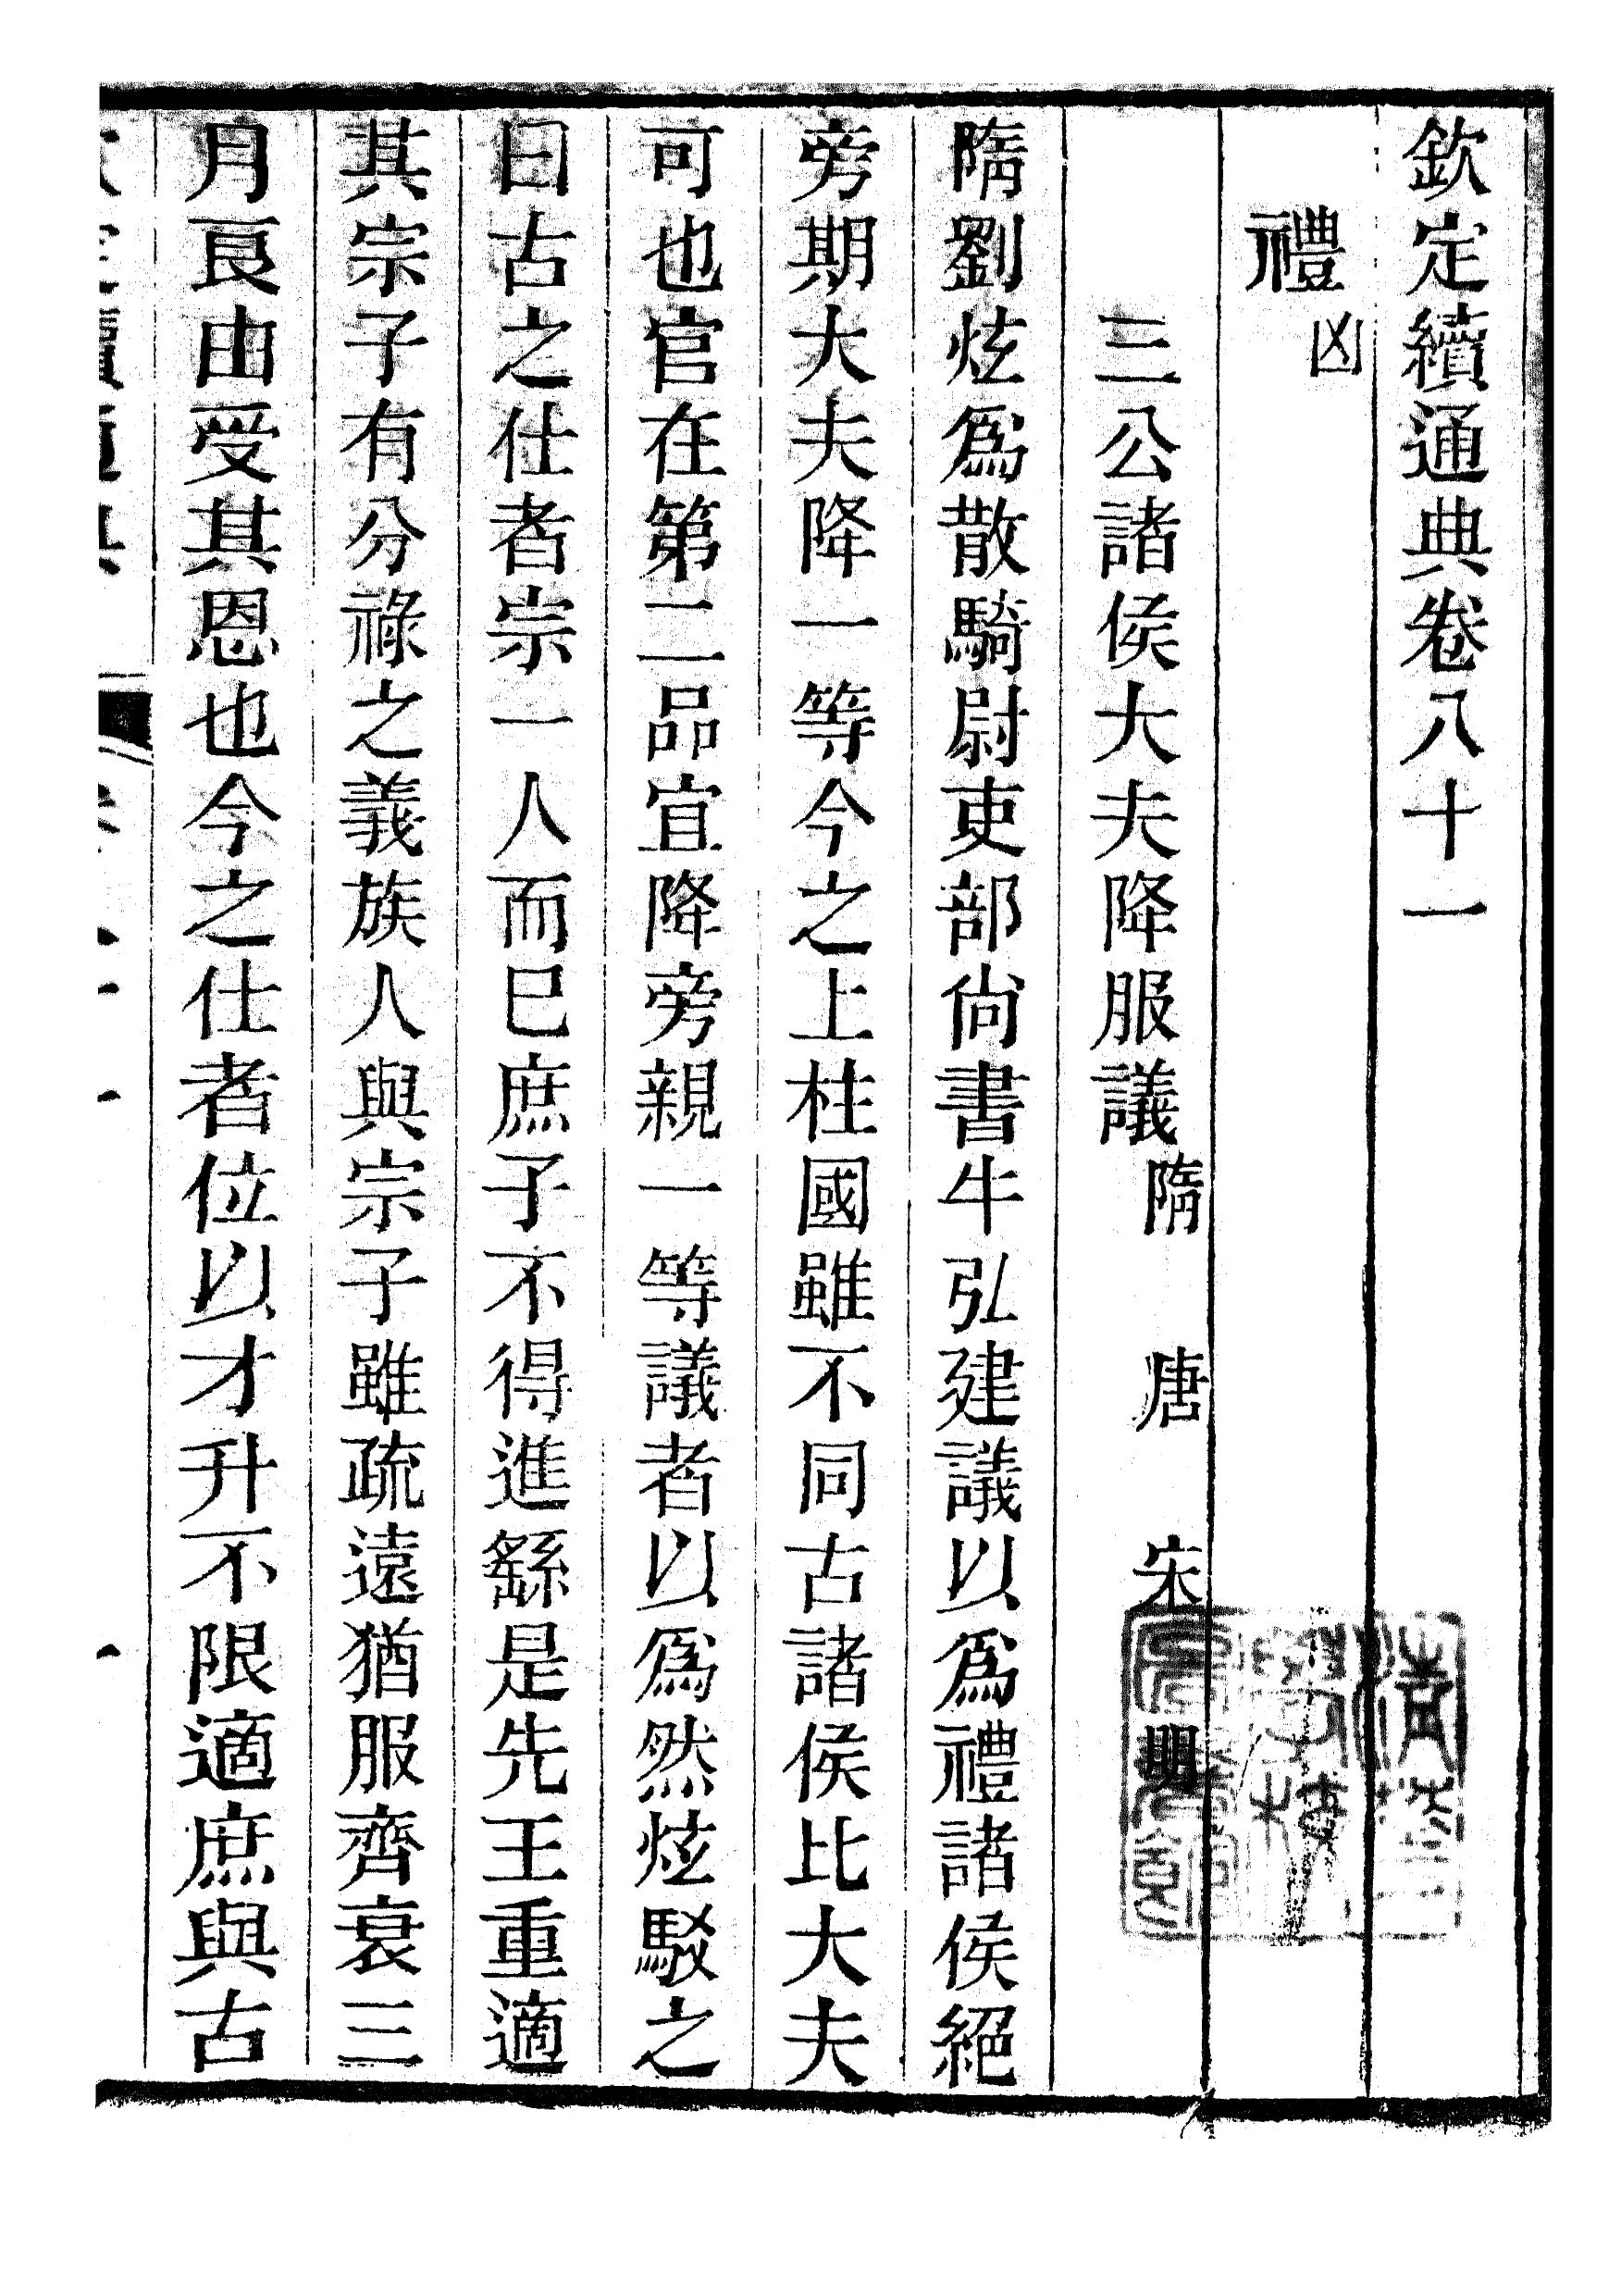 欽定續通典卷八十一
禮凶
三公諸侯大夫降服議隋 唐 宋 明
隋劉炫爲散騎尉吏部尚書牛弘建議以爲禮諸侯絕
旁期大夫降一等今之上柱國雖不同古諸侯比大夫
可也官在第二品宜降旁親一等議者以爲然炫駁之
曰古之仕者宗一人而已庶子不得進繇是先王重適
其宗子有分祿之義族人與宗子雖疏遠猶服齊衰三
月良由受其恩也今之仕者位以才升不限適庶與古